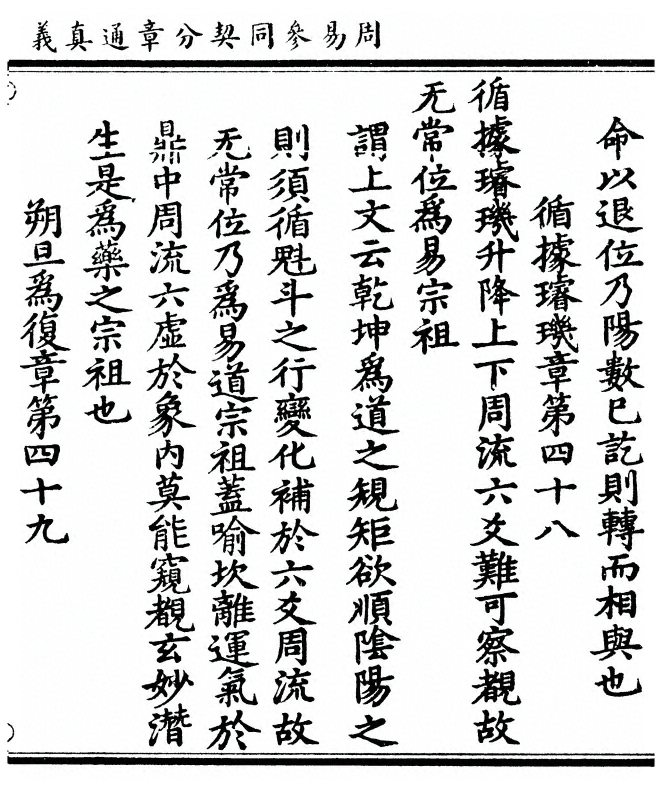 周易參同契分章通真義
命以退位乃陽數已訖則轉而相與也
循據璿璣章第四十八
循據璿璣升降上下周流六爻難可察覩故
无常位爲易宗祖
謂上文云乾坤爲道之規矩欲順陰陽之
則須循魁斗之行變化補於六爻周流故
无常位乃爲易道宗祖蓋喻坎離運氣於
鼎中周流六虛於象內莫能窺覩玄妙潛
生是爲藥之宗祖也
朔旦爲復章第四十九